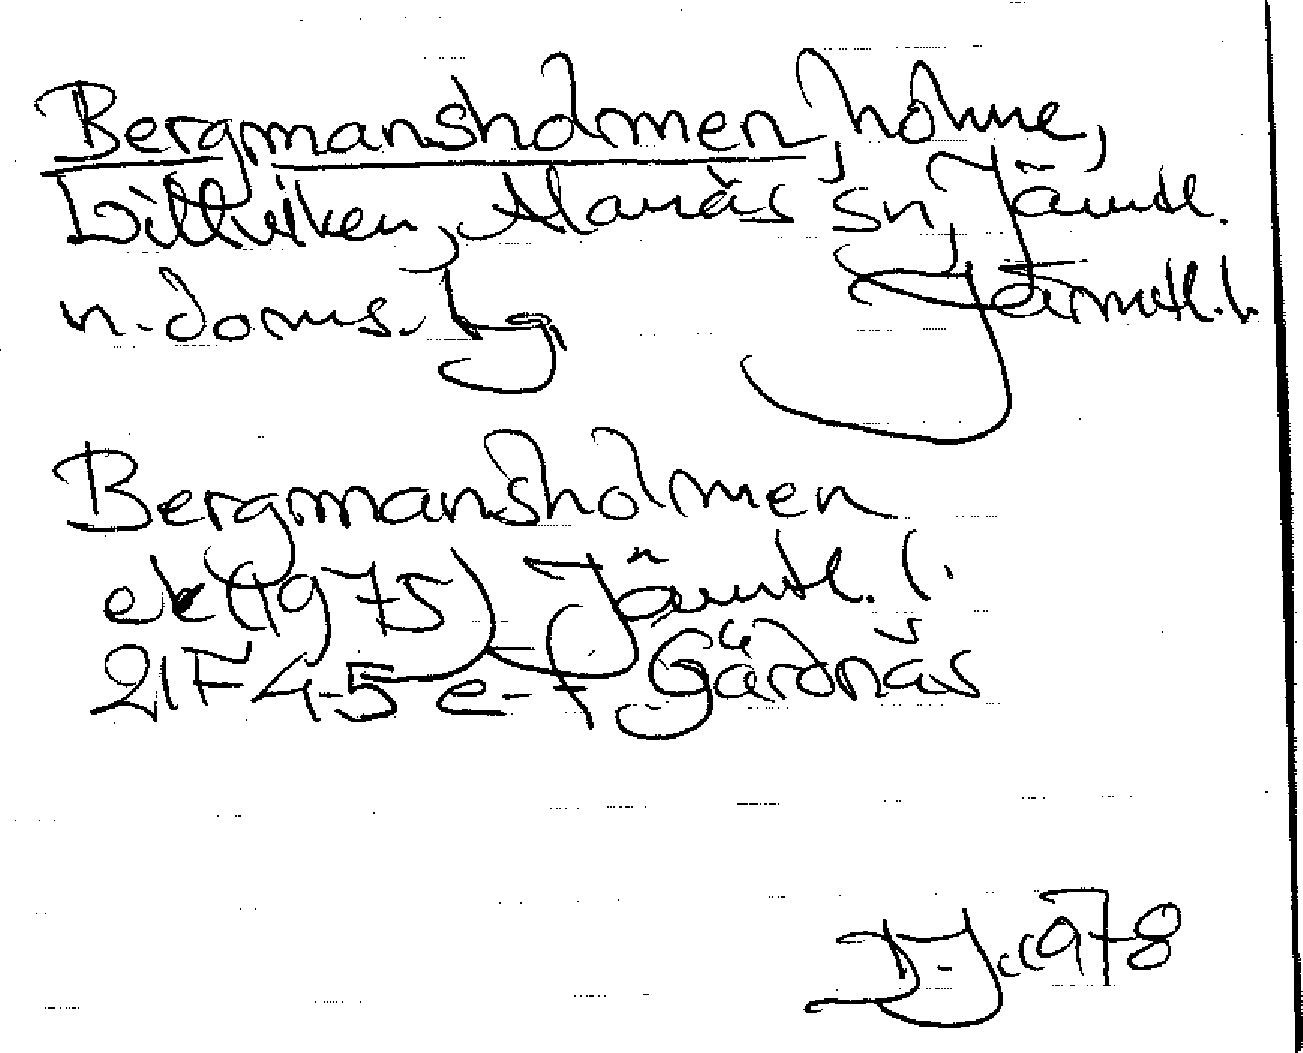 Bergmansholmen, holme,
Littviken, Alanäs sn, Jämtl.
n. doms. Jämtl. l.
Bergmansholmen
ek (1975) Jämtl. l.
21F 4-5 e-f Gärdnäs
D.J. 1978